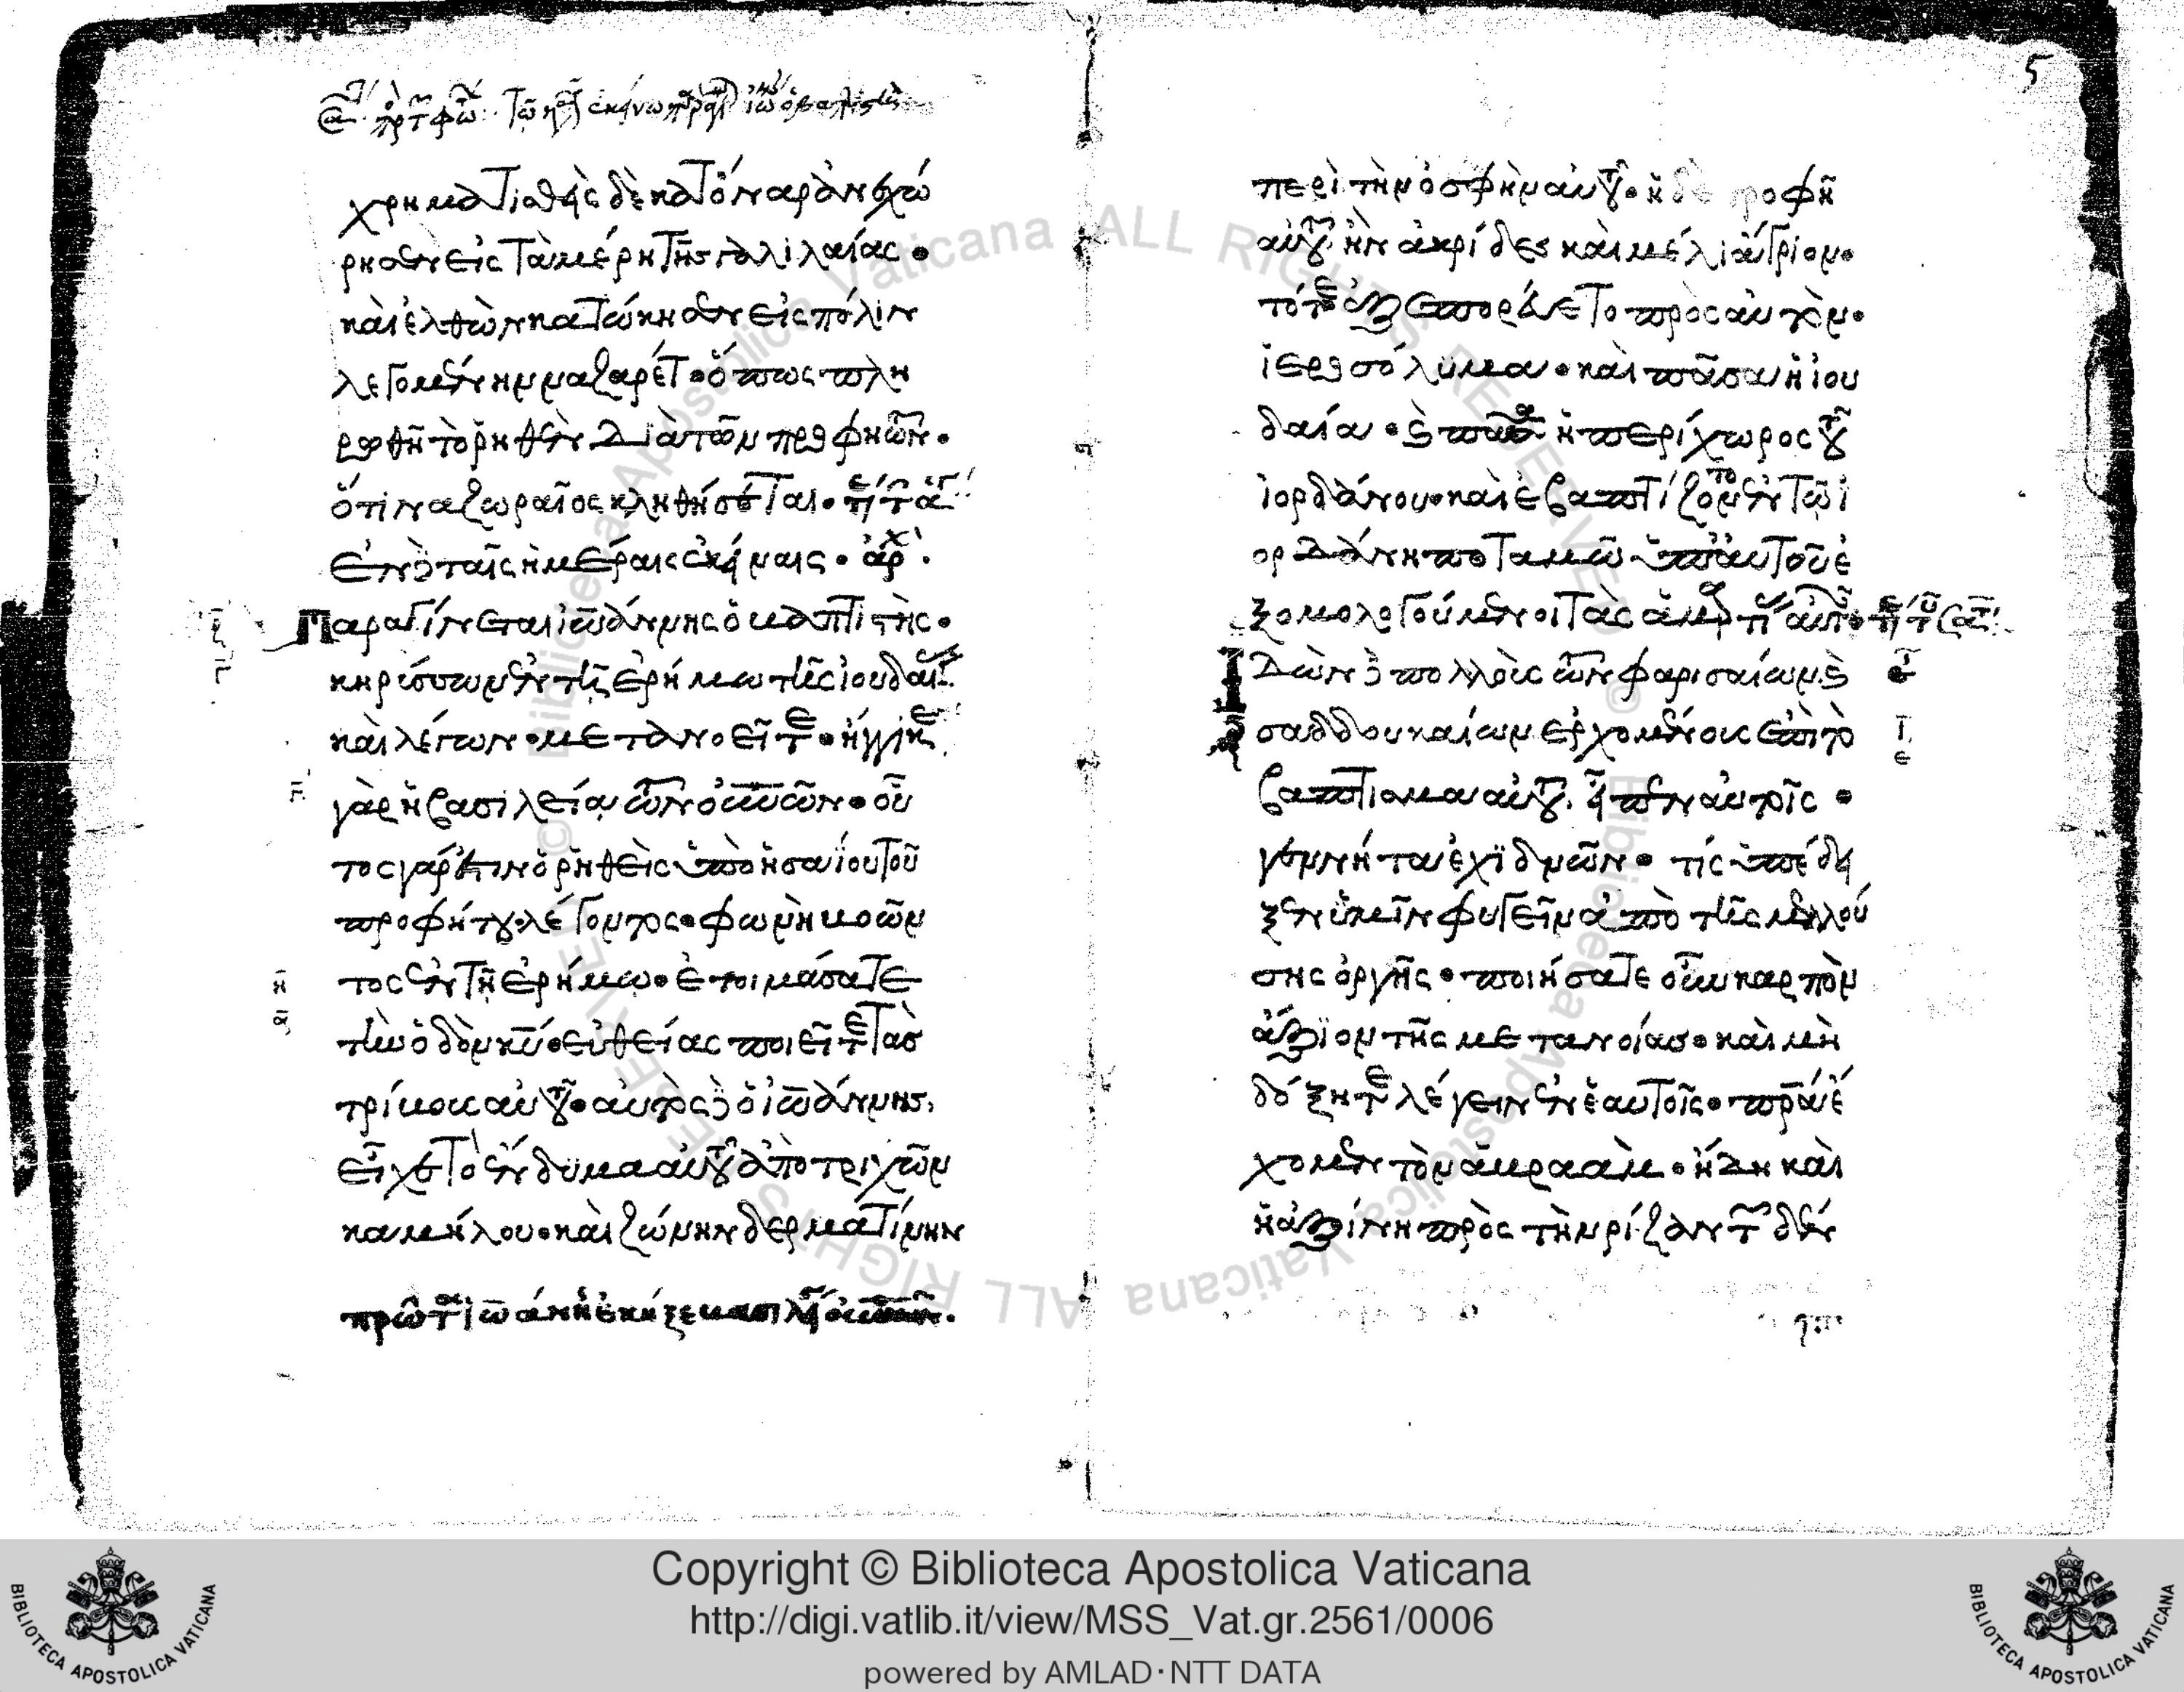 χρηματισθεὶς δὲ κατ' ὄναρ ἀνεχώ
ρησεν εἰς τὰ μέρη τῆς γαλιλαίας·
καὶ ἐλθὼν κατώκησεν εἰς πόλιν
λεγομένην ναζαρέτ· ὅπως πλη
ρωθῆ τὸ ῥηθὲν διὰ τῶν προφητῶν·
ὅτι ναζωραῖος κληθήσεται·
ἐν δὲ ταῖς ἡμέραις ἐκείναις· ἀρχ
Παραγίνεται ἰωάννης ὁ βαπτιστὴς·
κηρύσσων ἐν τῆ ἐρήμω τῆς ἰουδαί
καὶ λέγων· μετανοεῖτε· ἤγγικε
γὰρ ἡ βασιλεία τῶν οὐνῶν· οὗ
τος γάρ ἐστιν ὁ ῥηθεὶς ὑπὸ ἠσαΐου τοῦ
προφήτου λέγοντος· φωνὴ βοῶν
τος ἐν τῆ ἐρήμω· ἑτοιμάσατε
τὴν ὁδὸν κῦ· εὐθείας ποιεῖτε τὰσ
τρίβους αὐτοῦ· αὐτὸς δὲ ὁ ἰωάννης,
εἶχε τὸ ἔνδυμα αὐτοῦ ἀπὸ τριχῶν
καμήλου· καὶ ζώνην δερματίνην
περὶ τὴν ὀσφὴν αὐτοῦ· ἡ δὲ τροφὴ
αὐτοῦ ἦν ἀκρίδες καὶ μέλι ἄγριον·
τότε ἐξεπορεύετο πρὸς αὐτὸν·
ἱεροσόλυμα· καὶ πᾶσα ἡ ἰου
δαία· καὶ πᾶσα ἡ περίχωρος τοῦ
ἰορδάνου· καὶ ἐβαπτίζοντο ἐν τῶ ἰ
ορδάνη ποταμῶ ὑπ' αὐτοῦ ἐ
ξομολογούμενοι τὰς ἁμαρτίας αὐτῶν·
Ἰδὼν δὲ πολλοὺς τῶν φαρισαίων καὶ
σαδδουκαίων ἐρχομένους ἐπὶ τὸ
βάπτισμα αὐτοῦ. εἶπεν αὐτοῖς·
γεννήματα ἐχιδνῶν· τίς ὑπέδει
ξεν ὑμῖν φυγεῖν ἀπὸ τῆς μελλού
σης ὀργῆς· ποιήσατε οὖν καρπὸν
ἄξιον τῆς μετανοίας· καὶ μὴ
δόξητε λέγειν ἐν ἑαυτοῖς· πρα ἔ
χομεν τὸν ἀβραάμ· ἤδη καὶ
ἡ ἀξίνη πρὸς τὴν ρίζαν τῶν δέν
5
Copyright © Biblioteca Apostolica Vaticana
http://digi.vatlib.it/view/MSS_Vat.gr.2561/0006
powered by AMLAD·NTT DATA
BIBLIOTECA APOSTOLICA VATICANA
BIBLIOTECA APOSTOLICA VATICANA